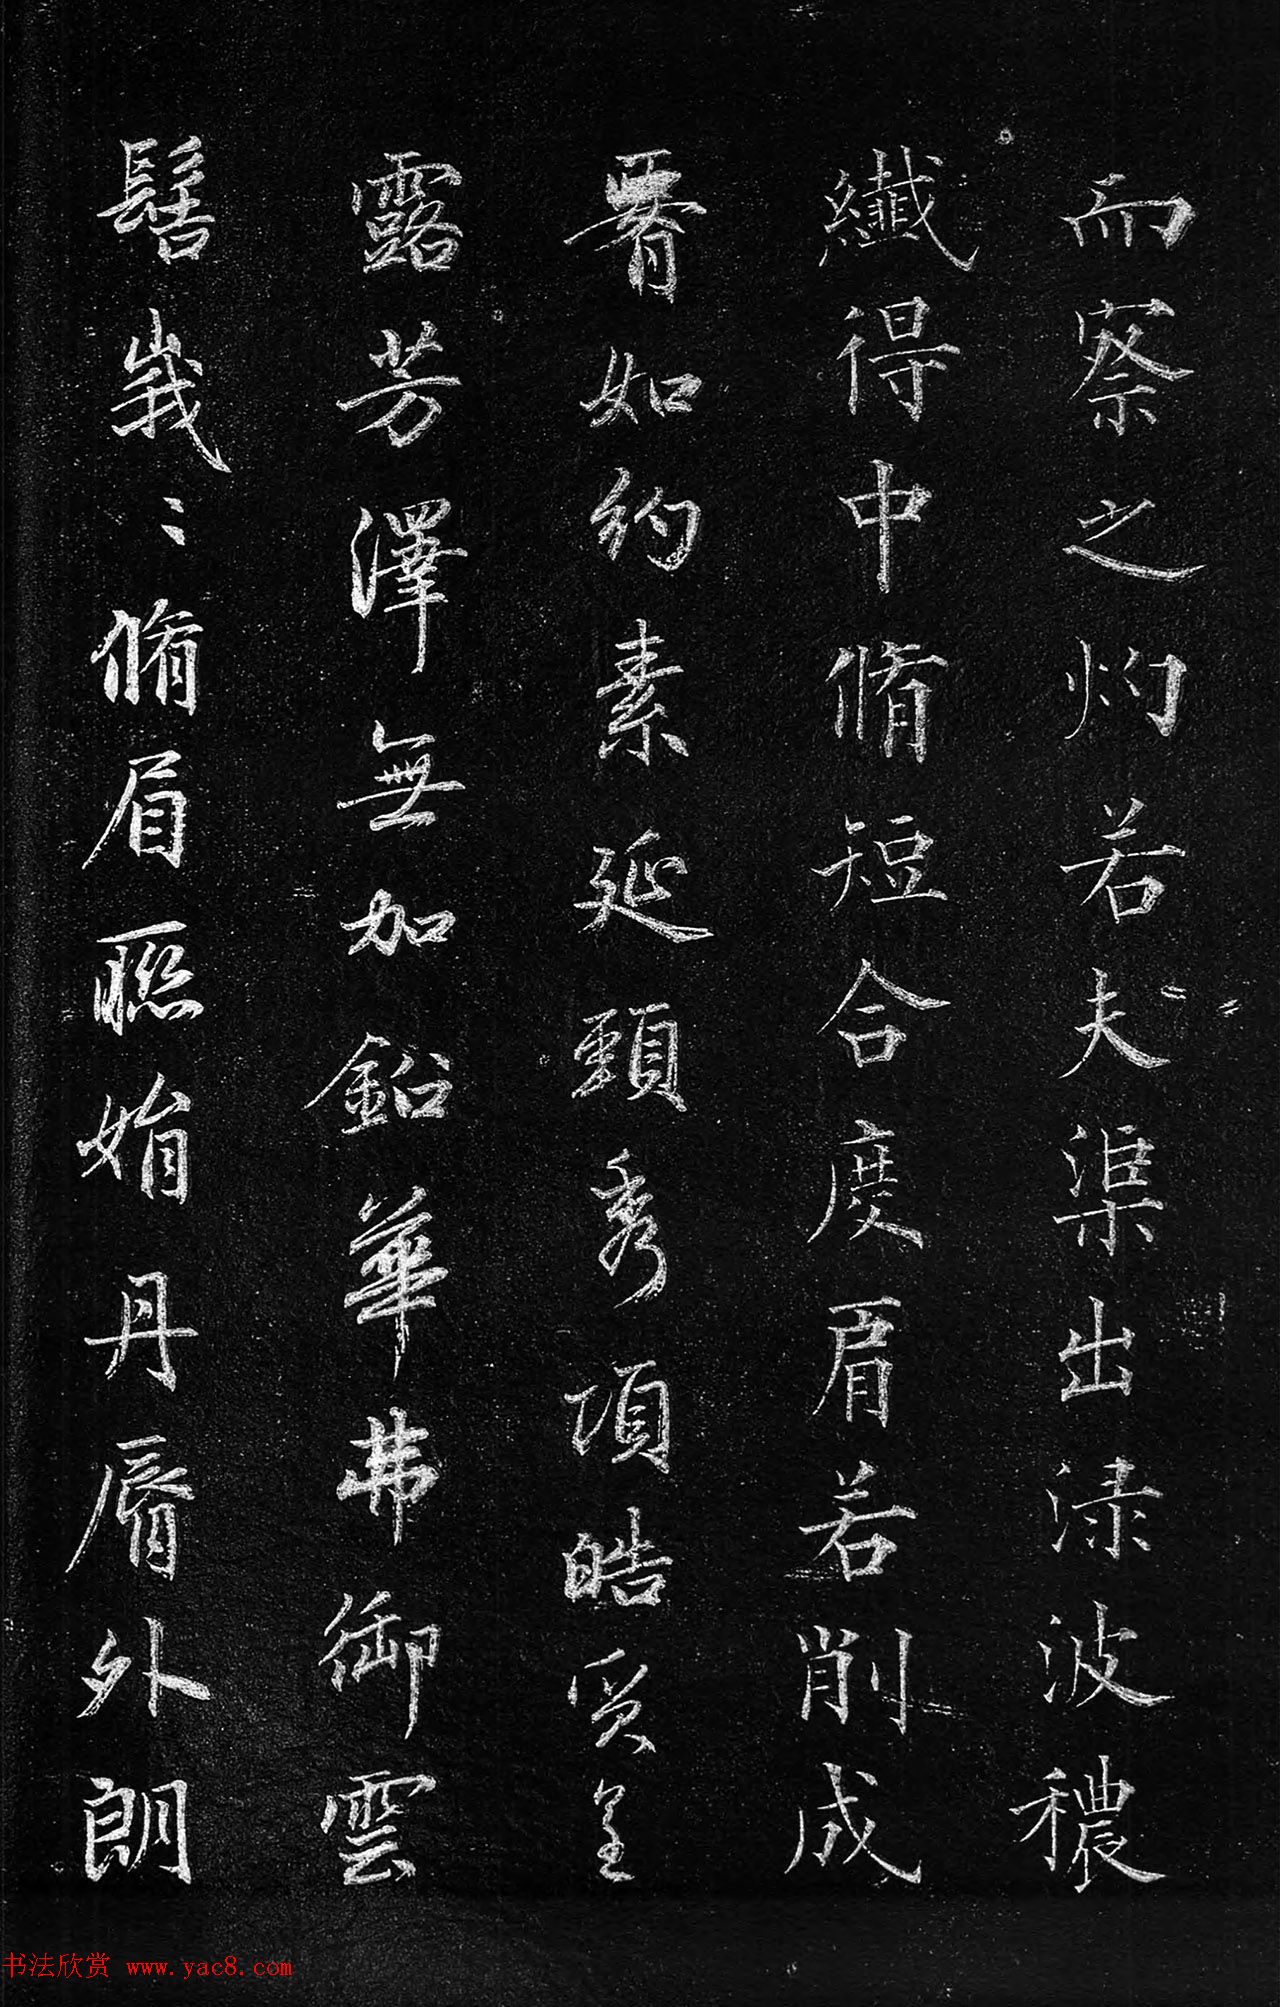 而察之灼若夫渠出渌波穠
纖得中脩短合度肩若削成
署如約素延頸秀項皓質呈
露芳澤無加鉛華弗御雲
髻峩〻脩眉聯娟丹脣外朗
书法欣赏 www.yac8.com